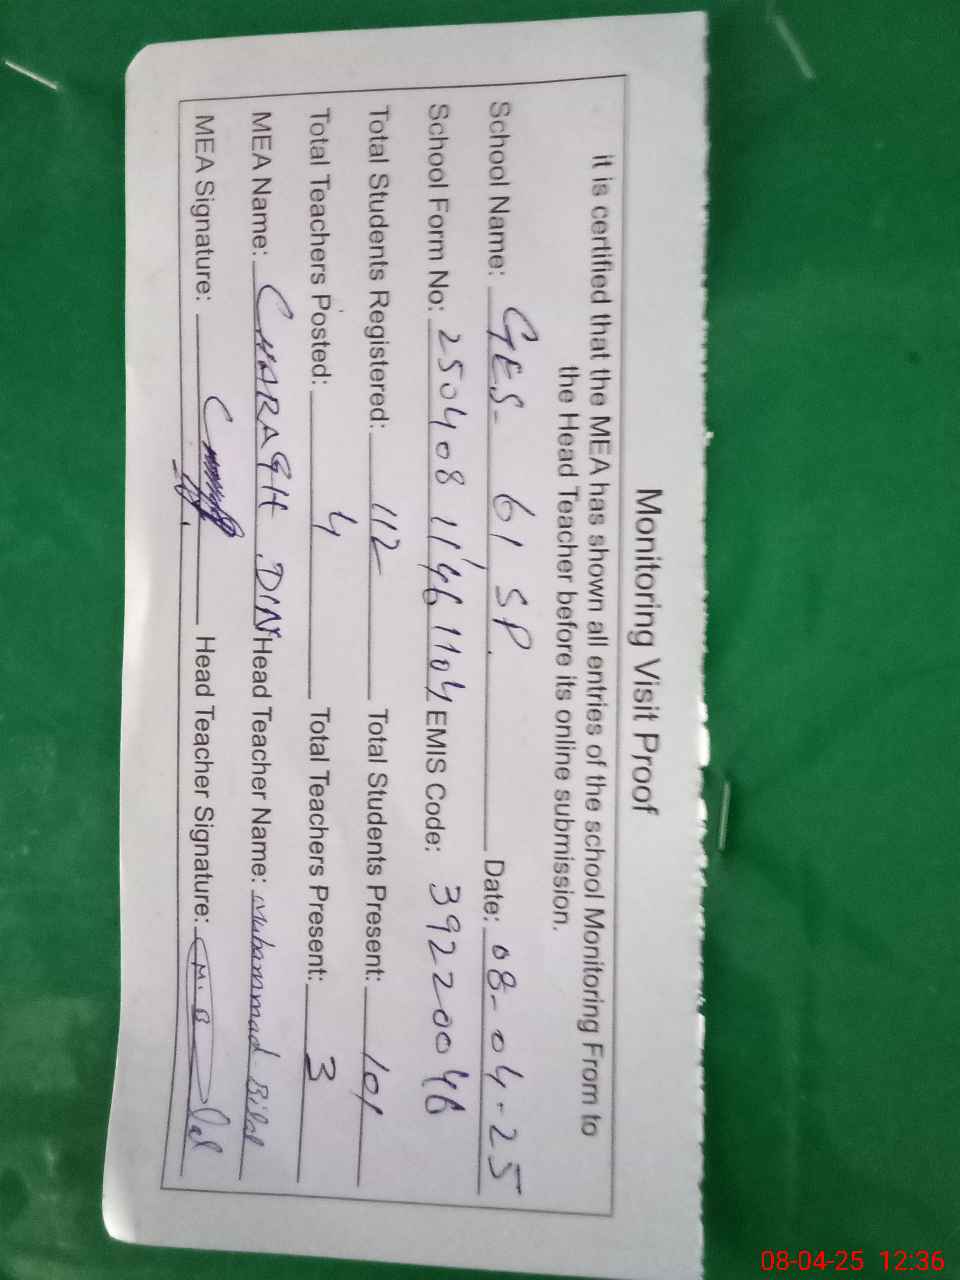 Monitoring Visit Proof
it is certified that the MEA has shown all entries of the school Monitoring From to
the Head Teacher before its online submission.
School Name: GES- 61 SP. Date: 08-04-25
School Form No: 250408 11461104 EMIS Code: 39220046
Total Students Registered: 112 Total Students Present: 101
Total Teachers Posted: 4 Total Teachers Present: 3
MEA Name: CHARAGH DIN Head Teacher Name: Muhammad Bilal
MEA Signature: Head Teacher Signature: M. B
08-04-25 12:36